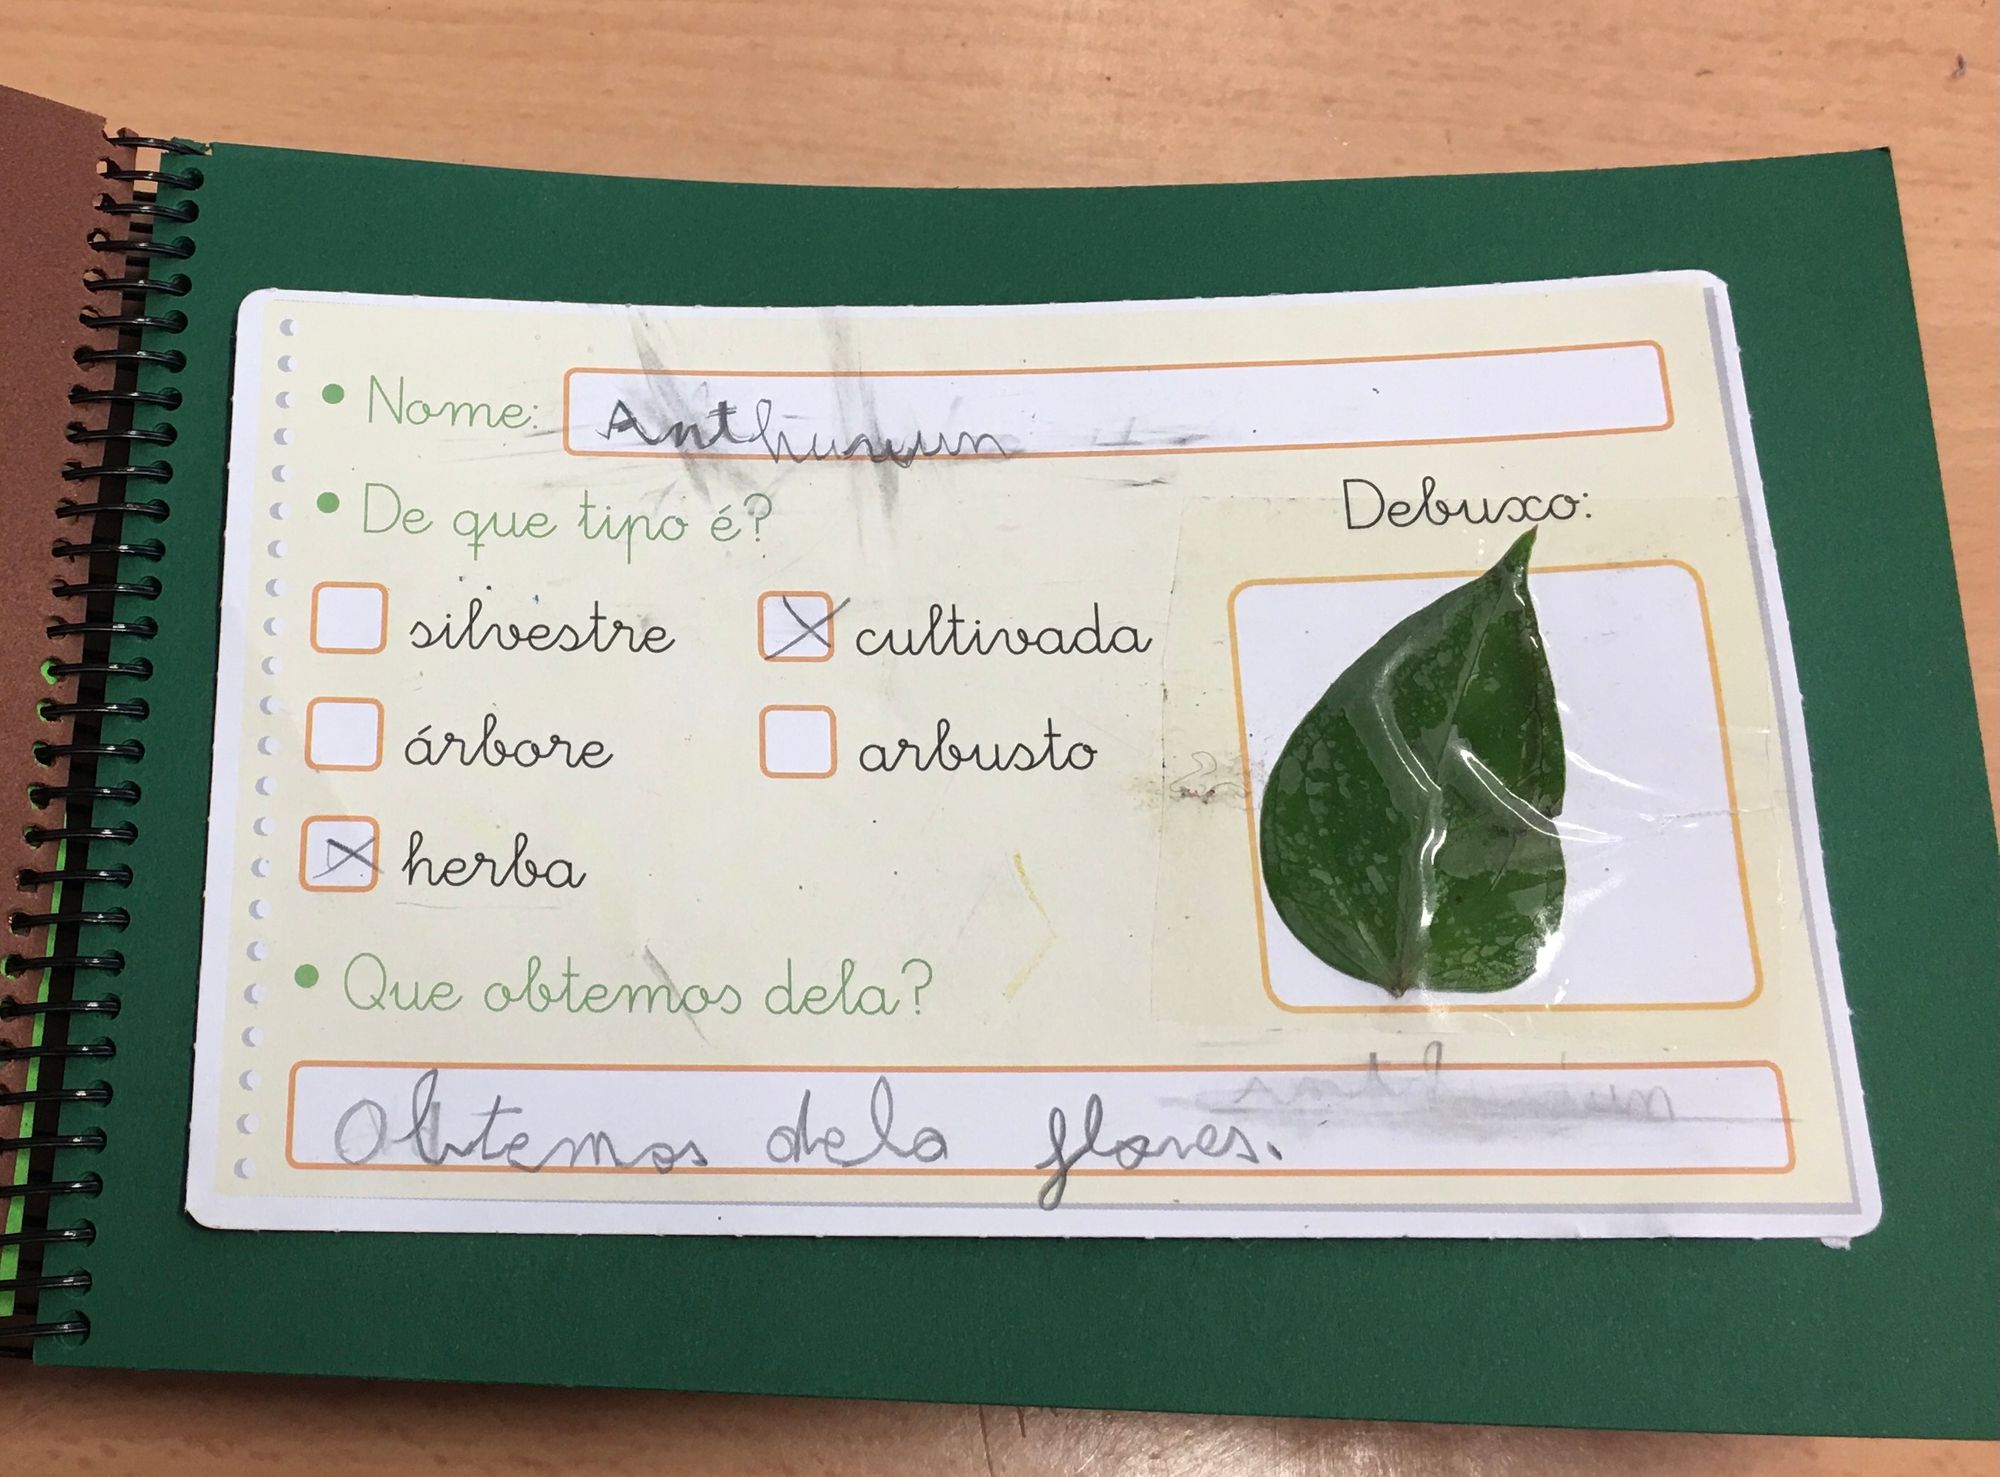 • Nome: Anthurium
• De que tipo é?
Debuxo:
silvestre
cultivada
árbore
arbusto
herba
• Que obtemos dela?
Obtemos dela flores.